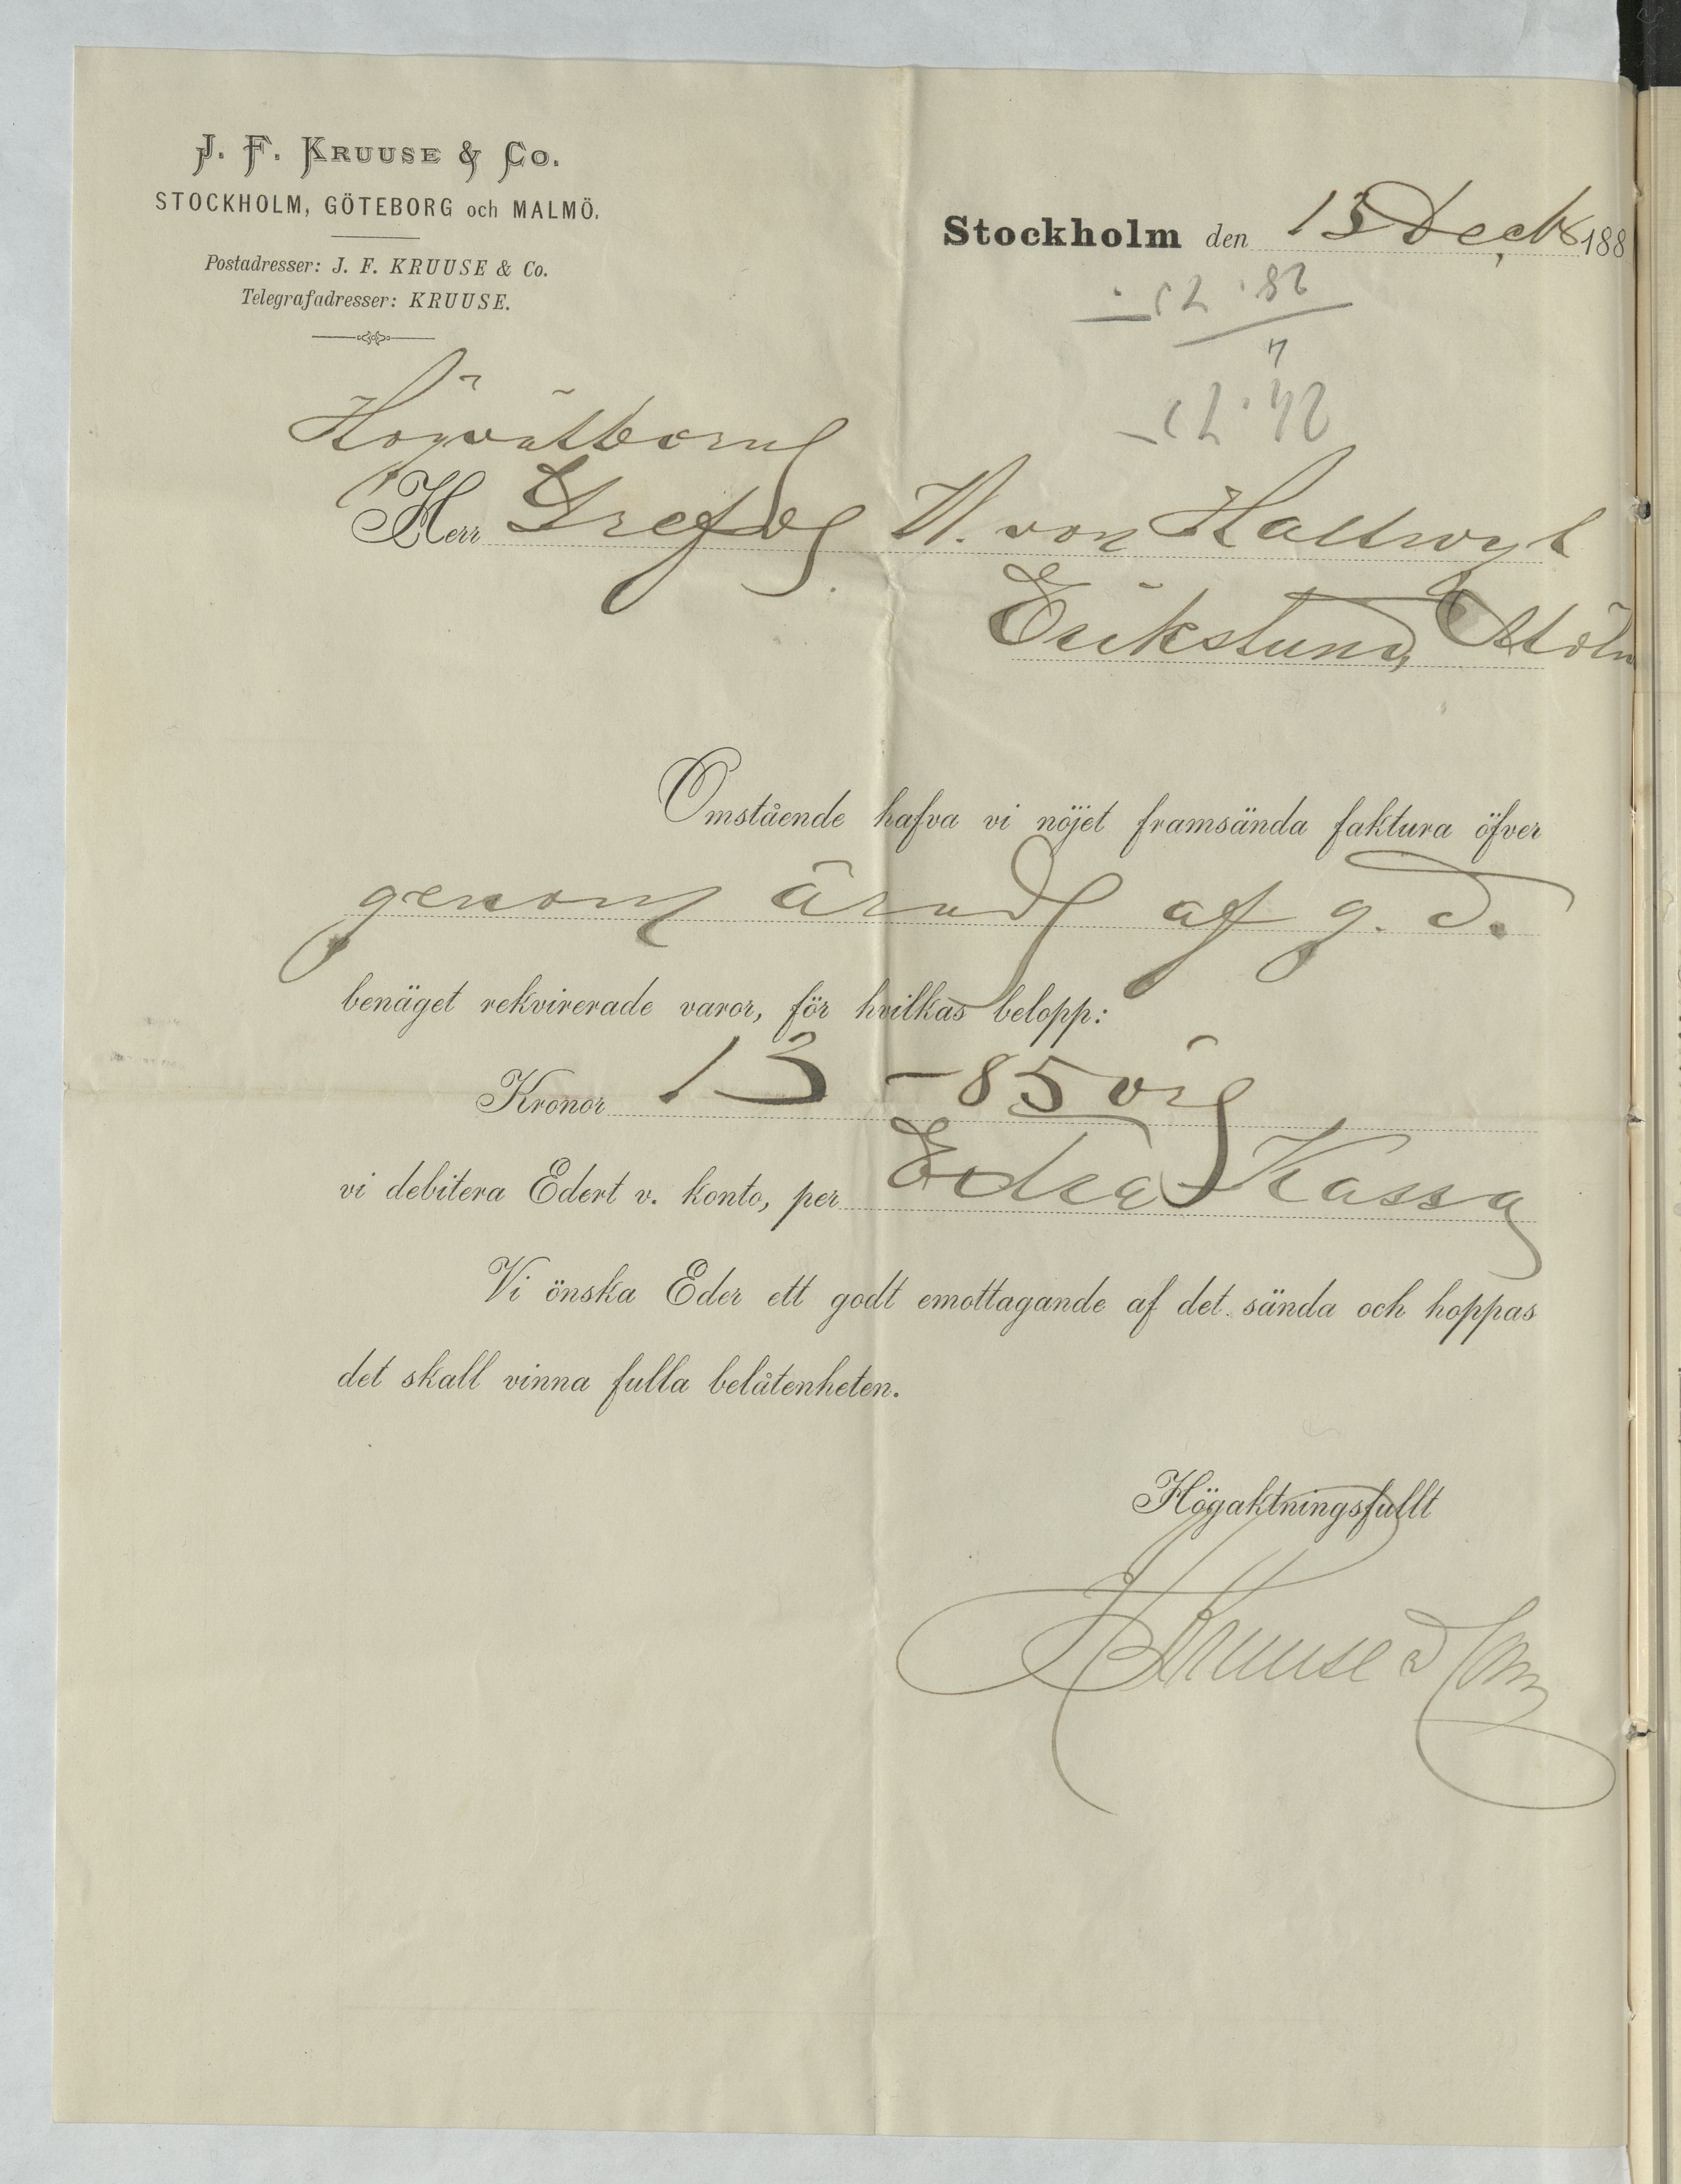 J. F. KRUUSE & Co.
STOCKHOLM, GÖTEBORG och MALMÖ.
Postadresser: J. F. KRUUSE & Co.
Telegrafadresser: KRUUSE.
Stockholm den 13 Decbr 188
28.75
4
24.75
Högvälborne
Herr Grefve W. von Hallwyl
Erikslund, Stólm
Omstående hafva vi nöjet framsända faktura öfver
genom ärade af g. d.
benäget rekvirerade varor, för hvilkas belopp:
Kronor 13 - 85 öre
vi debitera Edert v. konto, per Edra Kassa
Vi önska Eder ett godt emottagande af det sända och hoppas
det skall vinna fulla belåtenheten.
Högaktningsfullt
JFKruuse & Com